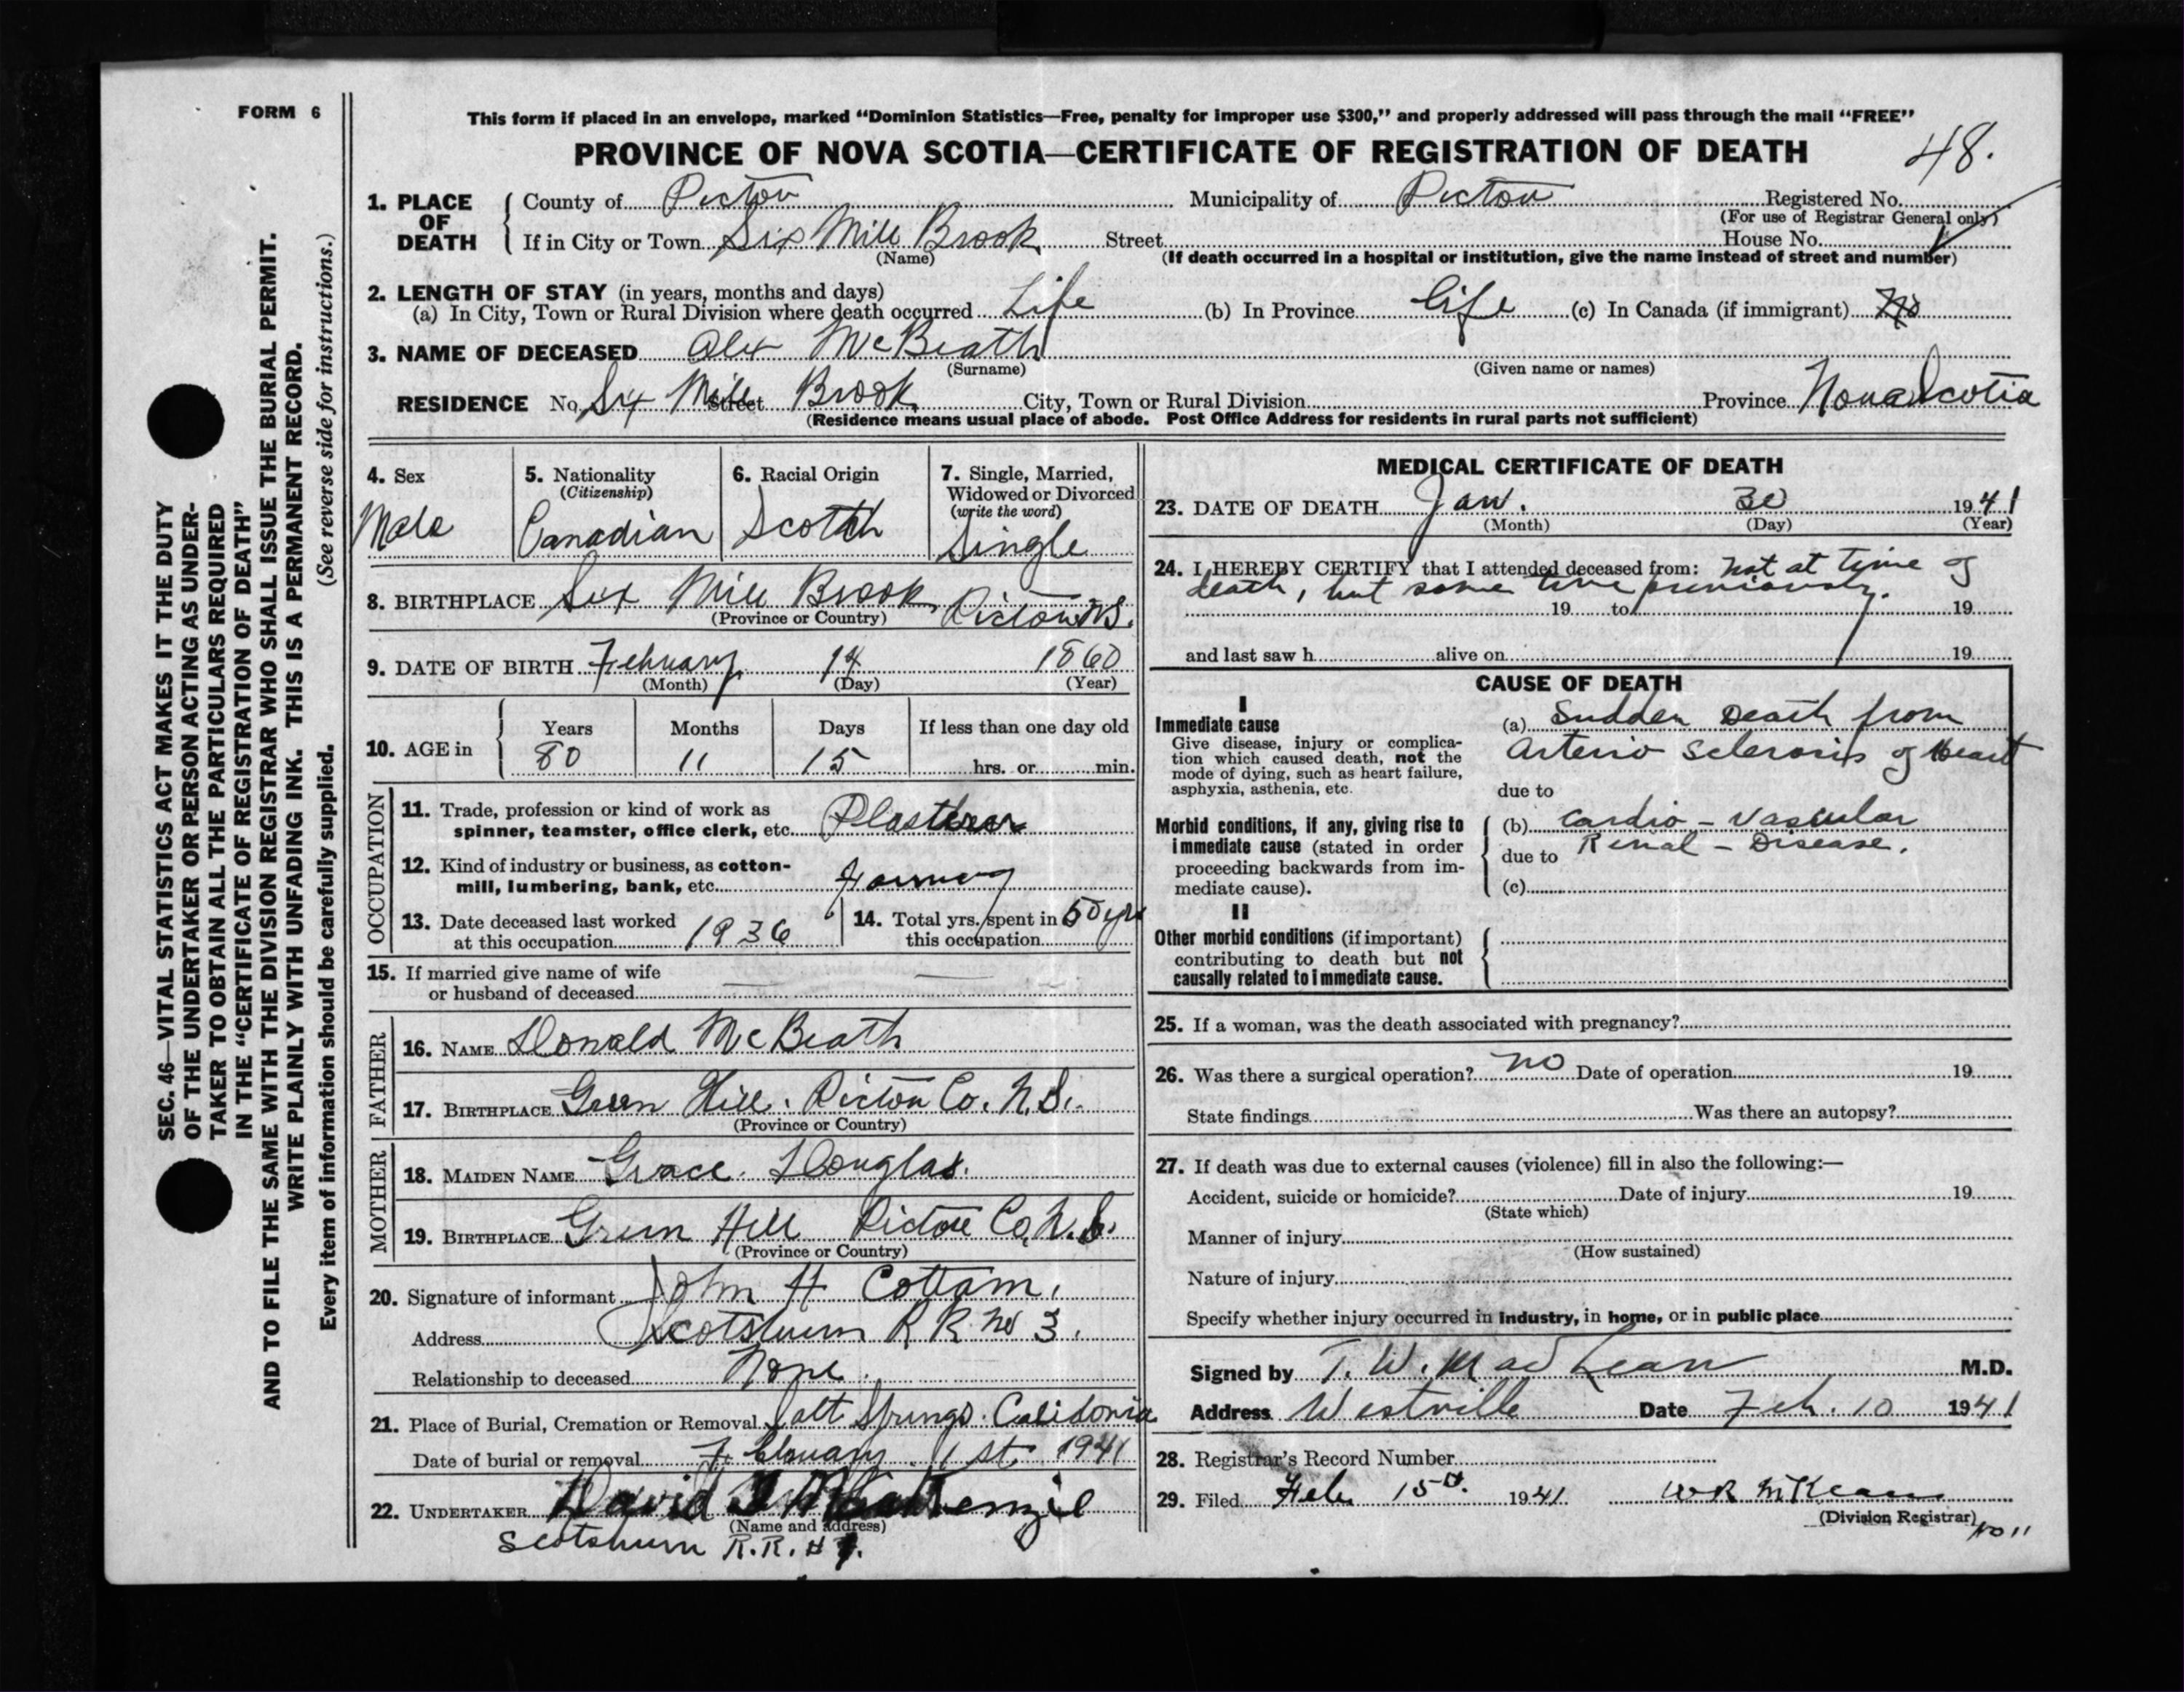 FORM 6
This form if placed in an envelope, marked “Dominion Statistics—Free, penalty for improper use $300,” and properly addressed will pass through the mail “FREE”
PROVINCE OF NOVA SCOTIA—CERTIFICATE OF REGISTRATION OF DEATH
48.
1. PLACE OF DEATH
County of Pictou Municipality of Pictou Registered No.
(For use of Registrar General only)
If in City or Town Six Mile Brook Street House No.
(Name) (If death occurred in a hospital or institution, give the name instead of street and number)
2. LENGTH OF STAY (in years, months and days)
(a) In City, Town or Rural Division where death occurred Life (b) In Province life (c) In Canada (if immigrant)
3. NAME OF DECEASED Alex McBeath
(Surname) (Given name or names)
RESIDENCE No. Six Mile Street Brook City, Town or Rural Division Province Nova Scotia
(Residence means usual place of abode. Post Office Address for residents in rural parts not sufficient)
4. Sex Male
5. Nationality (Citizenship) Canadian
6. Racial Origin Scotch
7. Single, Married, Widowed or Divorced (write the word) Single
8. BIRTHPLACE Six Mile Brook Pictou N.S.
(Province or Country)
9. DATE OF BIRTH February 14 1860
(Month) (Day) (Year)
10. AGE in Years 80 Months 11 Days 15 If less than one day old hrs. or min.
OCCUPATION
11. Trade, profession or kind of work as
spinner, teamster, office clerk, etc. Plasterer
12. Kind of industry or business, as cotton-
mill, lumbering, bank, etc. Farming
13. Date deceased last worked
at this occupation 1936
14. Total yrs. spent in
this occupation 50 yrs
15. If married give name of wife
or husband of deceased
FATHER
16. NAME Donald McBeath
17. BIRTHPLACE Green Hill. Pictou Co. N.S.
(Province or Country)
MOTHER
18. MAIDEN NAME Grace Douglas.
19. BIRTHPLACE Green Hill Pictou Co, N.S.
(Province or Country)
20. Signature of informant John H Cottam,
Address Scotsburn R R No 3.
Relationship to deceased None.
21. Place of Burial, Cremation or Removal Salt Springs. Calidonia
Date of burial or removal February 1st 1941
22. UNDERTAKER David MacKenzie
(Name and address)
Scotsburn R.R. #
MEDICAL CERTIFICATE OF DEATH
23. DATE OF DEATH Jan. 30 1941
(Month) (Day) (Year)
24. I HEREBY CERTIFY that I attended deceased from: not at time of
death, but some time previously.
19 to 19
and last saw h alive on 19
CAUSE OF DEATH
I
Immediate cause
Give disease, injury or complica-
tion which caused death, not the
mode of dying, such as heart failure,
asphyxia, asthenia, etc.
(a) Sudden Death from
Arterio sclerosis of Heart
due to
Morbid conditions, if any, giving rise to
immediate cause (stated in order
proceeding backwards from im-
mediate cause).
(b) Cardio - Vascular
due to Renal - Disease.
(c)
II
Other morbid conditions (if important)
contributing to death but not
causally related to immediate cause.
25. If a woman, was the death associated with pregnancy?
26. Was there a surgical operation? no Date of operation 19
State findings Was there an autopsy?
27. If death was due to external causes (violence) fill in also the following:—
Accident, suicide or homicide? Date of injury 19
(State which)
Manner of injury
(How sustained)
Nature of injury
Specify whether injury occurred in industry, in home, or in public place
Signed by T. W. MacLean M.D.
Address Westville Date Feb. 10 1941
28. Registrar's Record Number
29. Filed Feb 15 1941 WR McKean
(Division Registrar)
No 11
SEC. 46—VITAL STATISTICS ACT MAKES IT THE DUTY
OF THE UNDERTAKER OR PERSON ACTING AS UNDER-
TAKER TO OBTAIN ALL THE PARTICULARS REQUIRED
IN THE “CERTIFICATE OF REGISTRATION OF DEATH”
AND TO FILE THE SAME WITH THE DIVISION REGISTRAR WHO SHALL ISSUE THE BURIAL PERMIT.
WRITE PLAINLY WITH UNFADING INK. THIS IS A PERMANENT RECORD.
Every item of information should be carefully supplied. (See reverse side for instructions.)